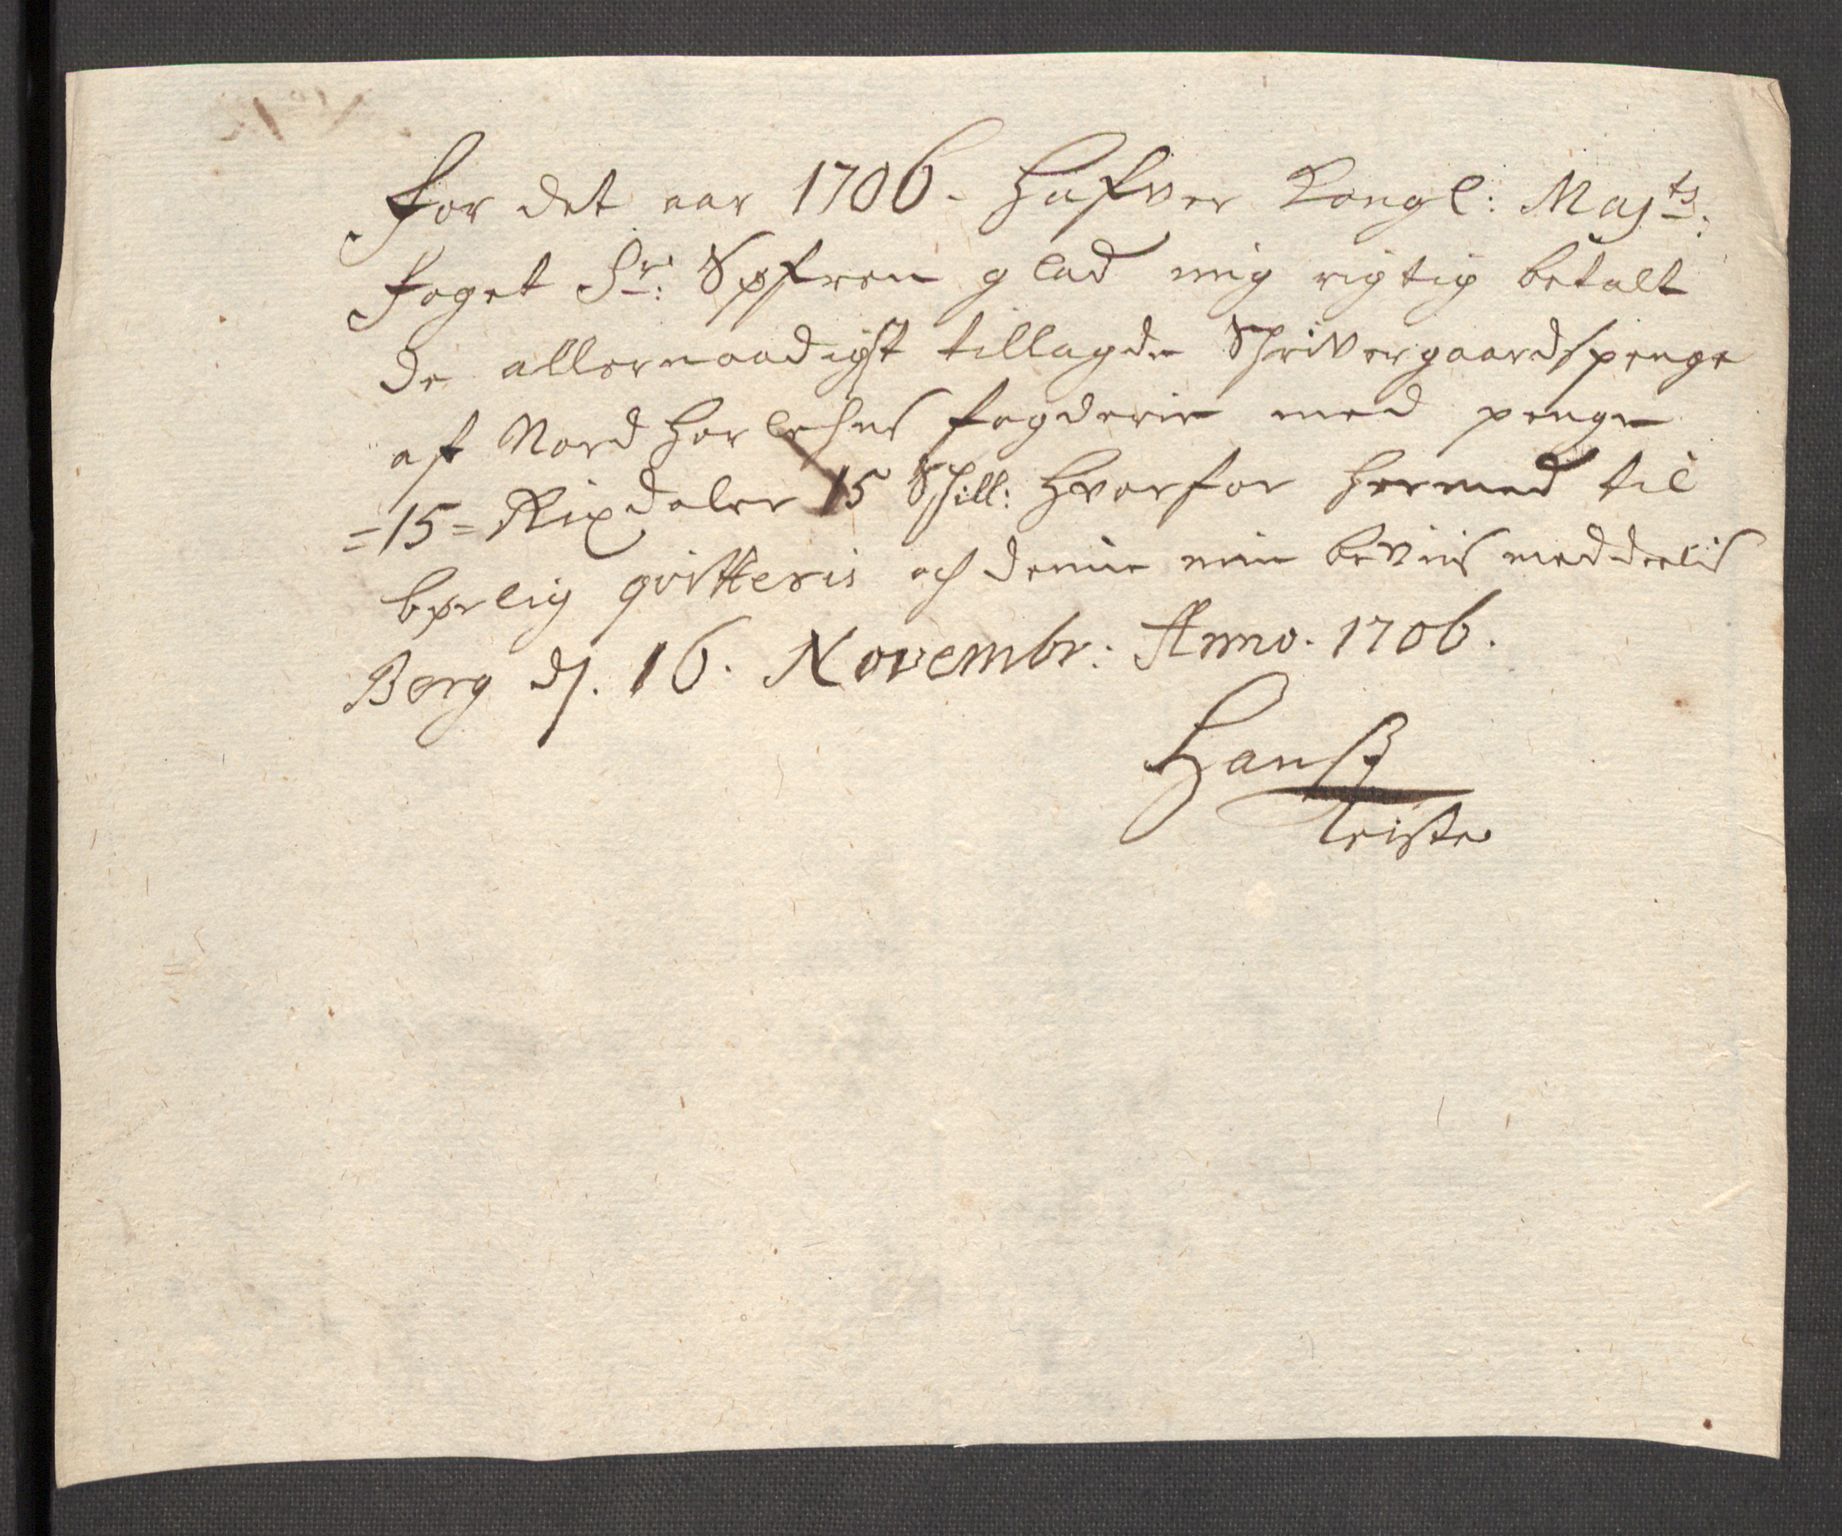 for det aar 1706 - Hafver Kongl: Majts:
foget Sr: Søfren glad mig rigtig betalt
de allernaadigst tillagde Schrivergaardspenge
aft Nordhorlehns fogderie med penge
=15= Rixdaler 15 Schill: hvorfor hermed til
børlig qvitteris och denne min beviis meddeelis
Berg dj. 16. Novembr: Anno. 1706.
Hansz
Teiste